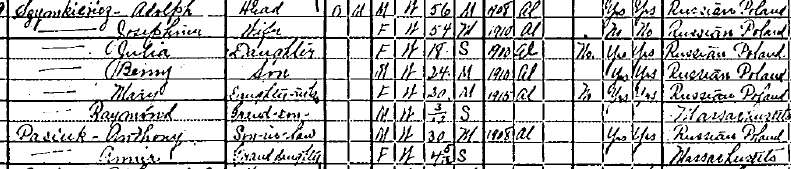 Szymkiewicz - Adolph Head O M M W 56 M 1908 Al Yes Yes Russian Poland
— Josephine Wife F W 54 M 1910 Al No No Russian Poland
— Julia Daughter F W 18 S 1910 Al No Yes Yes Russian Poland
— Benny Son M W 24 M 1910 Al Yes Yes Russian Poland
— Mary F W 30 M 1915 Al No Yes Yes Russian Poland
Raymond Grand-son M W 3/12 S Massachusetts
Pasiuk - Anthony Son-in-law M W 30 M 1908 Al Yes Yes Russian Poland
— Annie Grand daughter F W 4 5/12 S Massachusetts